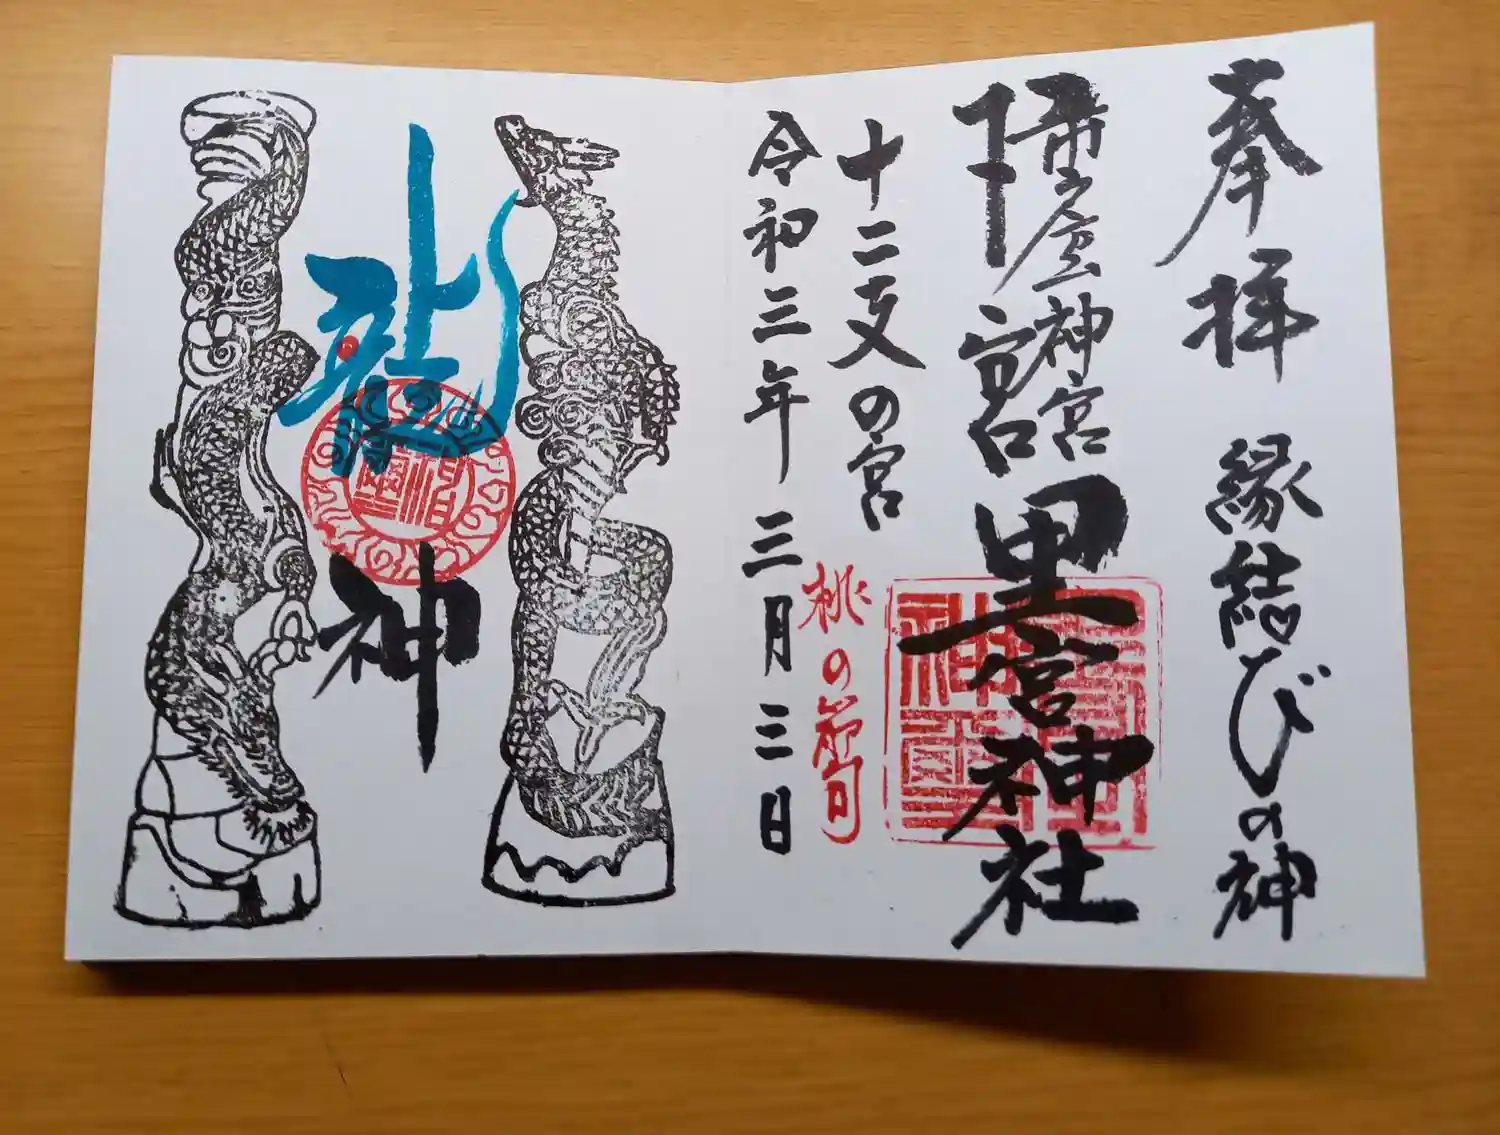 奉拝 縁結びの神
神宮
里宮神社
十二支の宮
桃の節句
令和三年三月三日
龍神